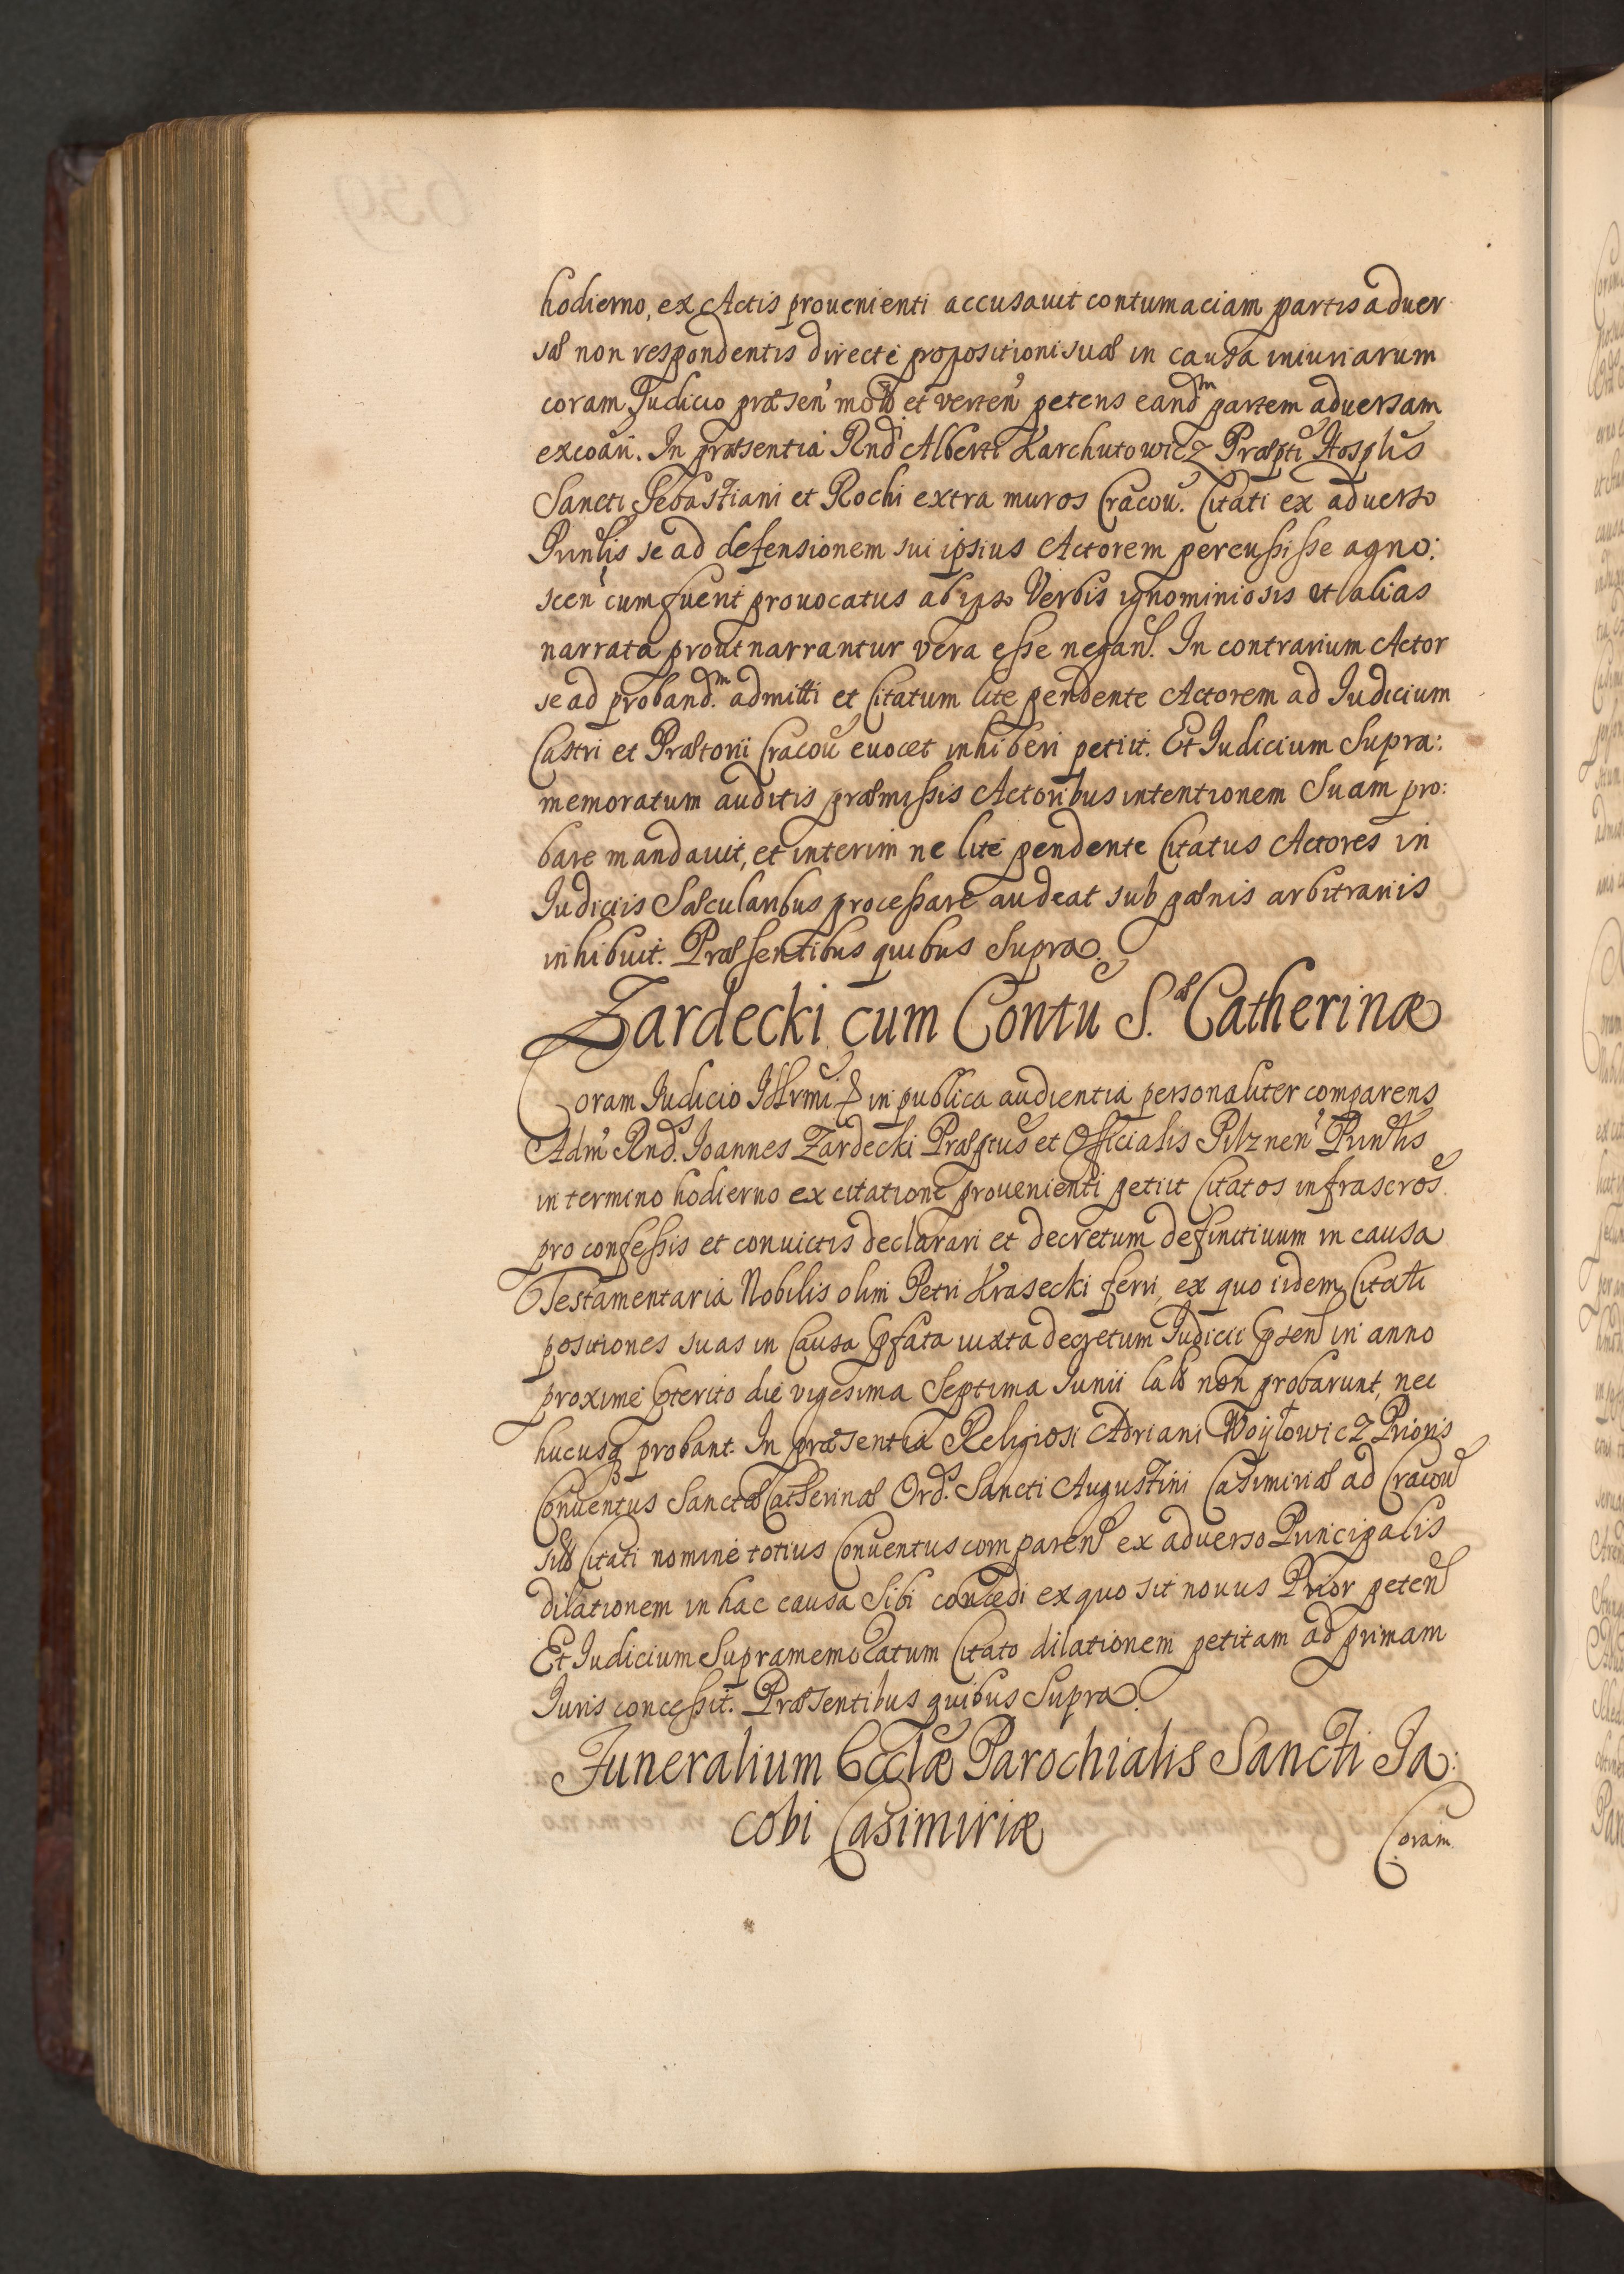 hodierno, ex Actis prouenienti accusauit contumaciam partis aduer
sæ non respondentis directe propositioni suæ in causa iniuriarum
coram Judicio præsen' et verten' petens eandm partem aduersam
excoãri. In præsentia Rndi Alberti Karchutowicz Præpti Hosplis
Sancti Sebastiani et Rochi extra muros Cracou. Citati ex aduerso
se ad defensionem sui ipsius Actorem percussisse agno:
scen' cum fuerit prouocatus ab ipso Verbis ignominiosis et alias
narrata prout narrantur vera esse negan. In contrarium Actor
se ad proband.m admitti et Citatum lite pendente Actorem ad Judicium
Castri et Prætorii Cracou euocet inhiberi petiit. Et Judicium Supra:
memoratum auditis præmissis Actoribus intentionem Suam pro:
bare mandauit, et interim ne lite pendente Citatus Actores in
Judiciis Sæcularibus processare audeat sub pænis arbitrariis
inhibuit. Præsentibus quibus Supra.
Zardecki cum Contu S.æ Catherinæ
Coram Judicio in publica audientia personaliter comparens
Adm' Rnds. Joannes Zardecki Præptus et Officialis Pilznen'
in termino hodierno ex citatione prouenienti petiit Citatos infrascros
pro confessis et conuictis declarari et decretum definitiuum in causa
Testamentaria Nobilis olim Petri Krasecki ferri, ex quo iidem Citati
positiones suas in Causa pfata iuxta decretum Judicii psen in anno
proxime pterito die vigesima Septima Junii non probarunt, nec
hucusq probant. In præsentia Religiosi Adriani Woytowicz Prioris
Conuentus Sanctæ Catherinæ Ord.s Sancti Augustini Casimiriæ ad Cracou
Citati nomine totius Conuentus comparen ex aduerso Principalis
dilationem in hac causa Sibi concedi ex quo sit nouus Prior peten
Et Judicium Supramemoratum Citato dilationem petitam ad primam
Juris concessit. Præsentibus quibus Supra.
Funeralium Ecclæ Parochialis Sancti Ja:
cobi Casimiriæ
Coram